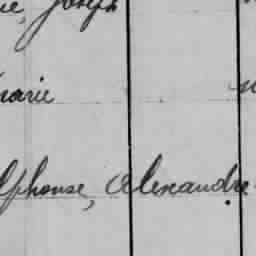 Joseph
marie
Alphonse, Alexandre